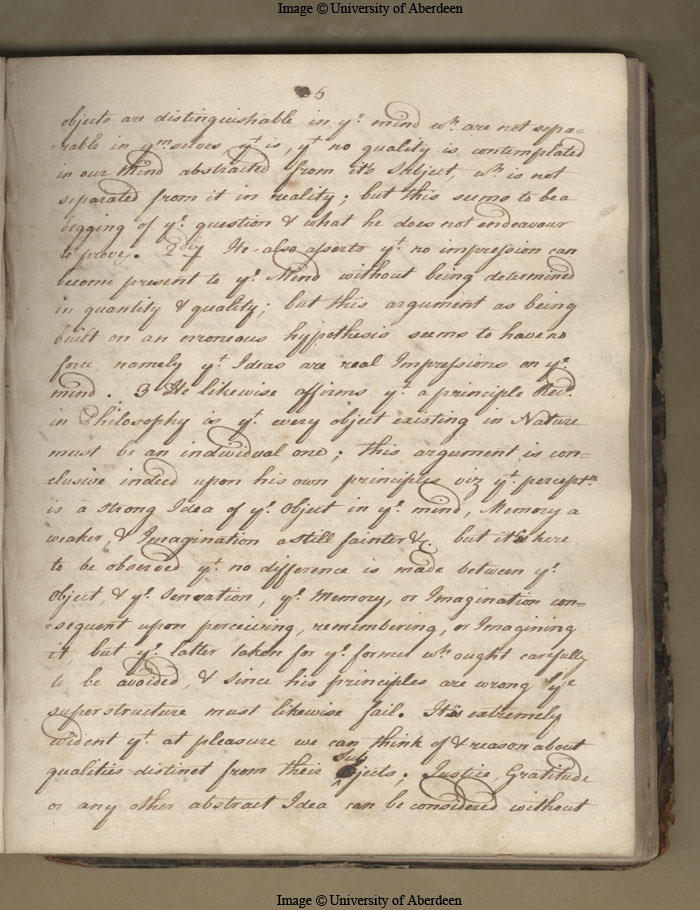 Image © University of Aberdeen
5
objects are distinguishable in yͤ mind wͪ are not sepa=
=rable in yᵐselves yͭ is, yͭ no quality is contemplated
in our Mind abstracted from its Subject, wͪ is not
separated from it in reality; but this seems to be a
begging of yͤ question & what he does not endeavour
to prove. 2dly He also asserts yͭ no impression can
become present to yͤ Mind without being determined
in quantity & quality; but this argument as being
built on an erroneous hypothesis seems to have no
force, namely yͭ Ideas are real Impressions on yͤ
mind. 3 He likewise affirms yͭ a principle Recᵈ.
in Philosophy is yͭ every object existing in Nature
must be an individual one; this argument is con=
clusive indeed upon his own principles viz yͭ perceptⁿ
is a strong Idea of yͤ Object in yͤ mind, Memory a
weaker, & Imagination a still fainter &c. but it is here
to be observed yͭ no difference is made between yͤ
Object, & yͤ Sensation, yͤ Memory, or Imagination con=
=sequent upon perceiving, remembering, or Imagining
it, but yͤ latter taken for yͤ former wͪ ought carefully
to be avoided, & since his principles are wrong yͤ
superstructure must likewise fail. It is extremely
evident yͭ at pleasure we can think of & reason about
qualities distinct from their Subjects; Justice, Gratitude
or any other abstract Idea can be considered without
Image © University of Aberdeen